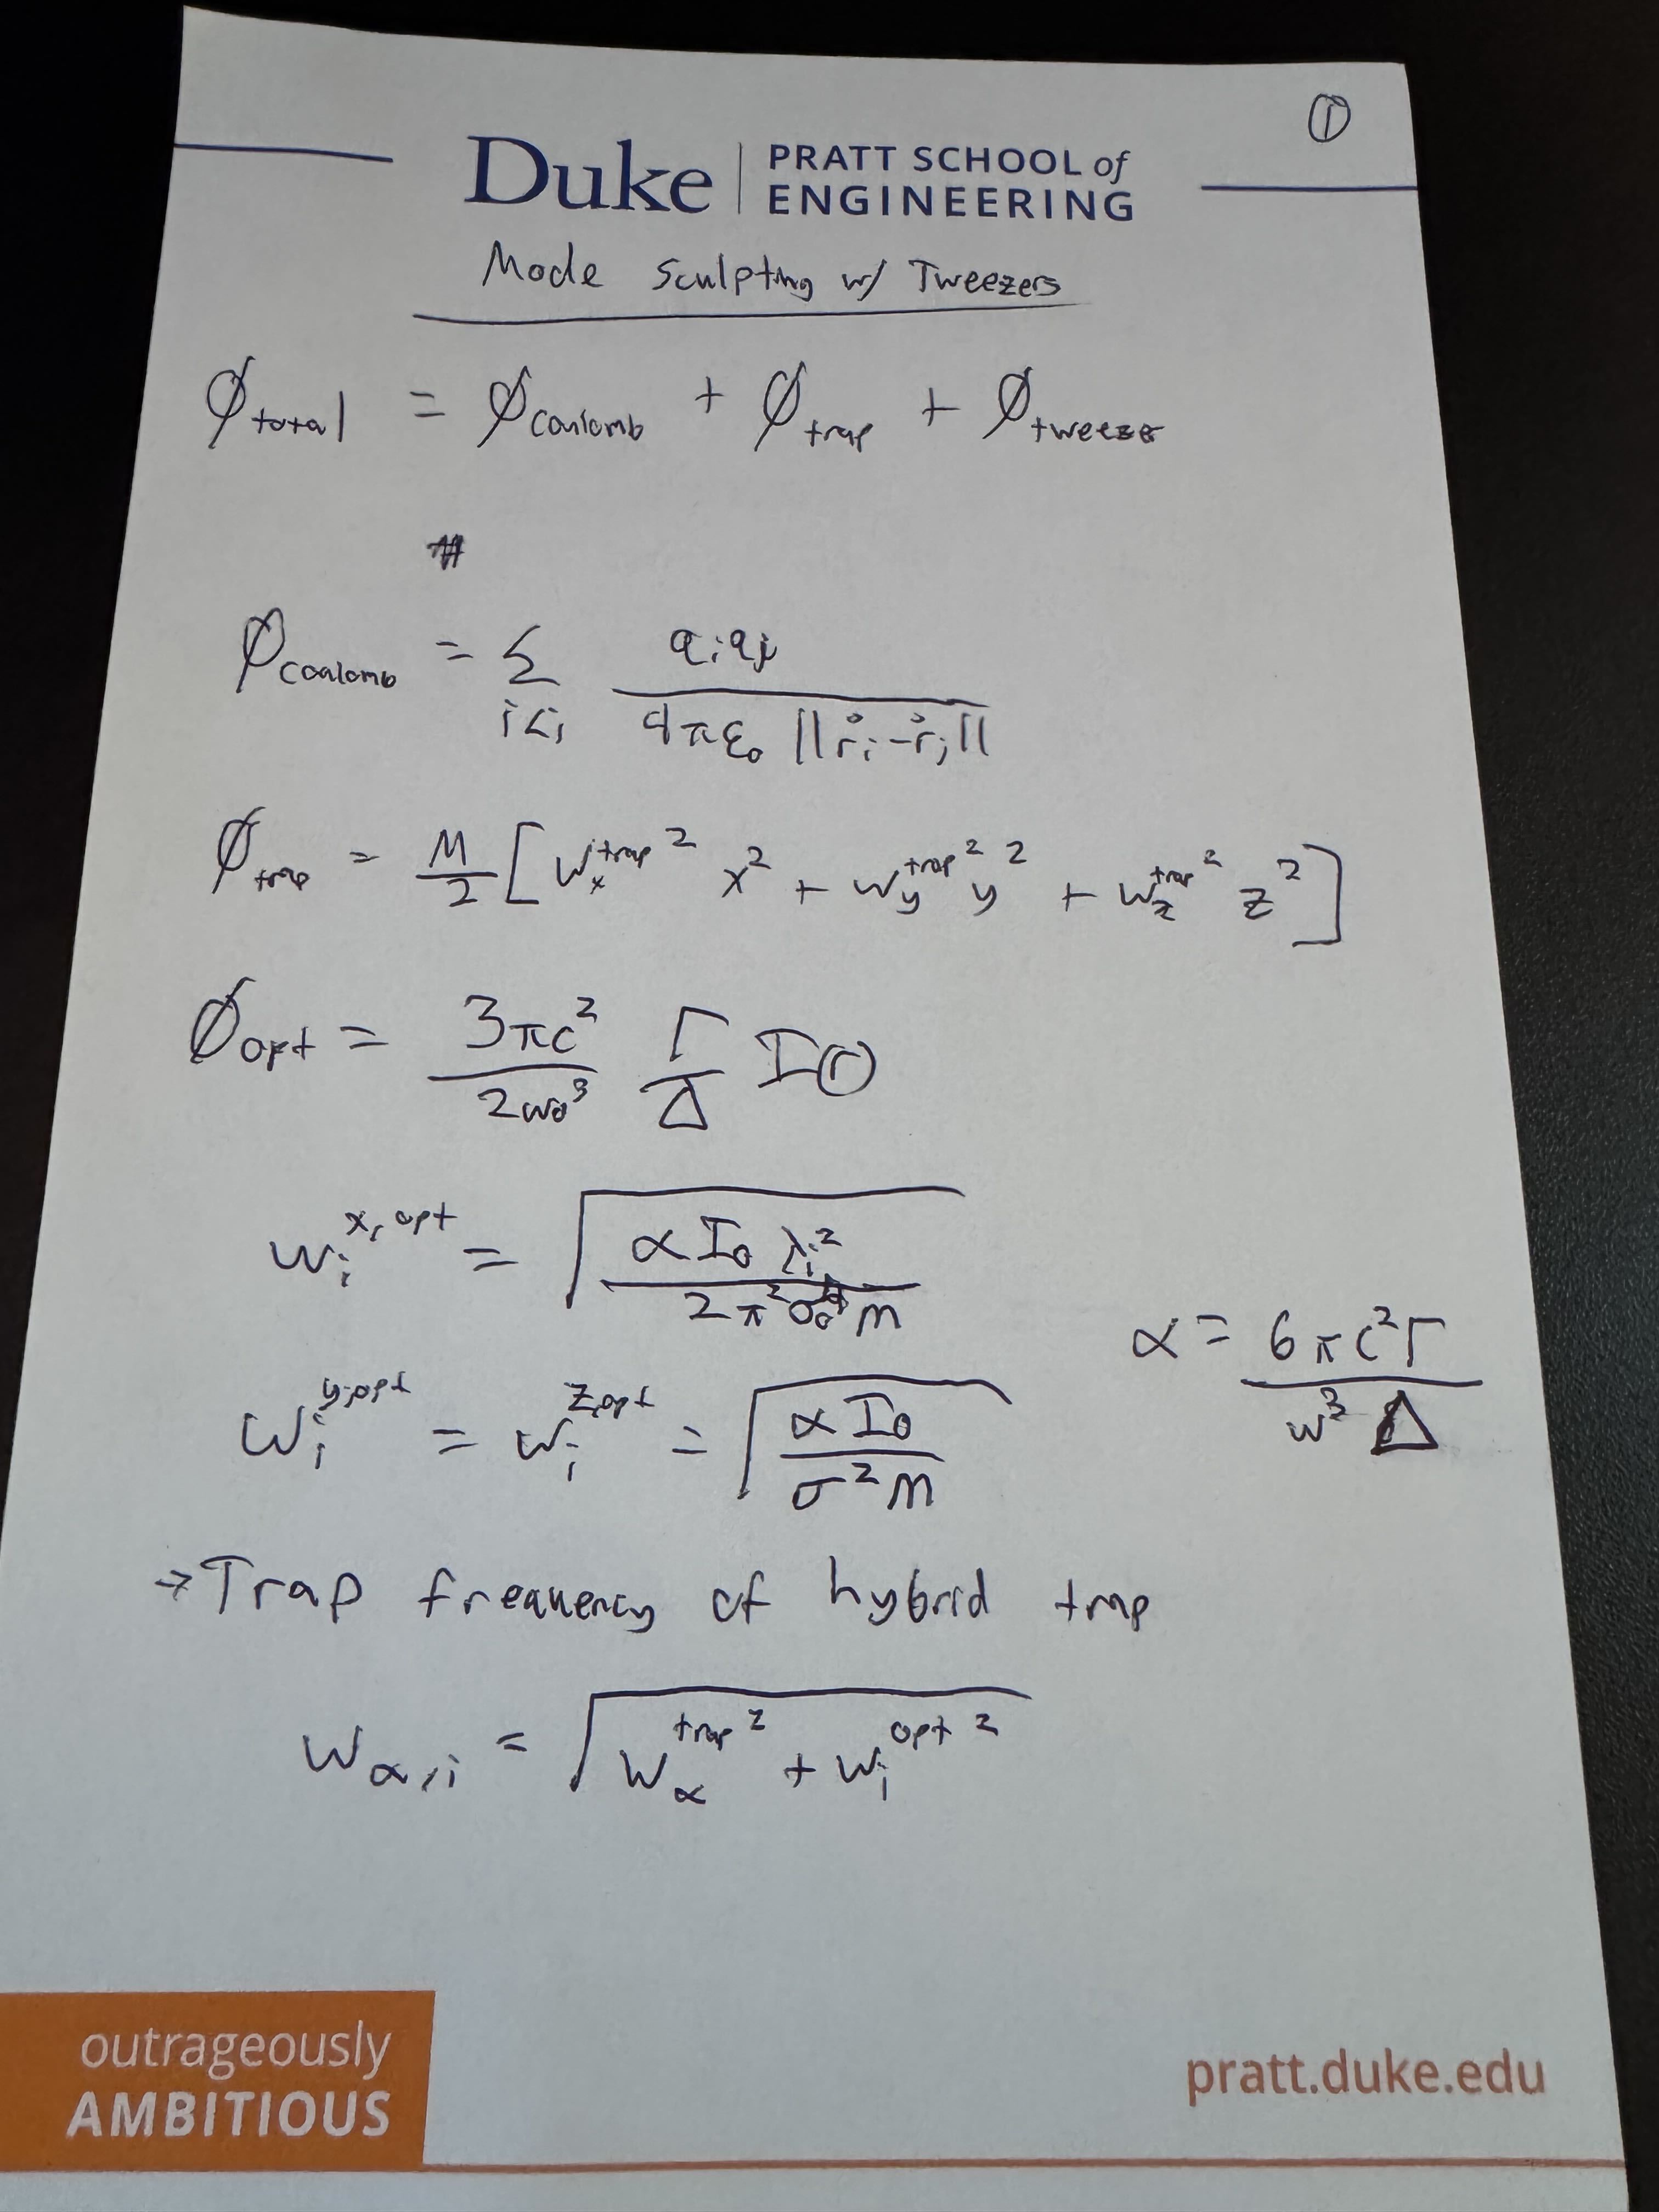 ①
Duke | PRATT SCHOOL of
ENGINEERING
Mode Sculpting w/ Tweezers
∅total = ∅Coulomb + ∅trap + ∅tweezer
∅Coulomb = Σ i<j qᵢqⱼ / 4πε₀ ||r̊ᵢ - r̊ⱼ||
∅trap = M/2 [ wₓ^trap ² x² + w_y^trap ² y² + w_z^trap ² z² ]
∅opt = 3πc² / 2w₀³ Γ/Δ I(r)
wᵢ^x,opt = √( αI₀ λᵢ² / 2π²σ⁴m )
α = 6πc²Γ / w³ Δ
wᵢ^y,opt = wᵢ^z,opt = √( αI₀ / σ²m )
→ Trap frequency of hybrid trap
w_α,i = √( w_α^trap ² + wᵢ^opt ² )
outrageously
AMBITIOUS
pratt.duke.edu